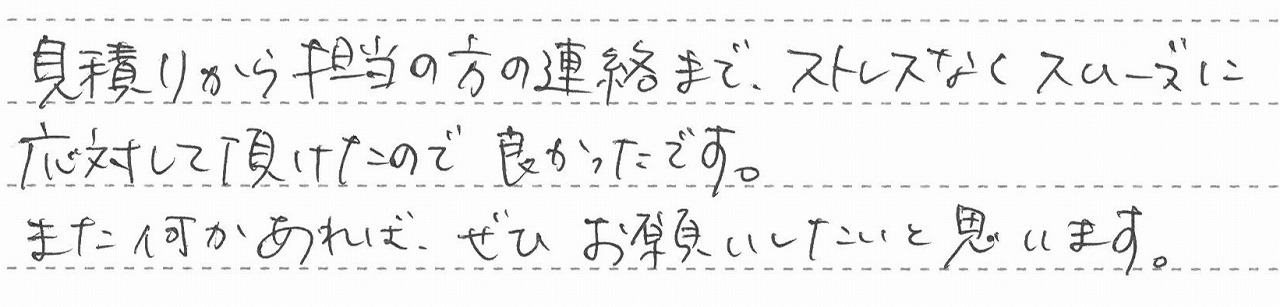 見積りから担当の方の連絡まで、ストレスなくスムーズに
応対して頂けたので良かったです。
また何かあれば、ぜひお願いしたいと思います。